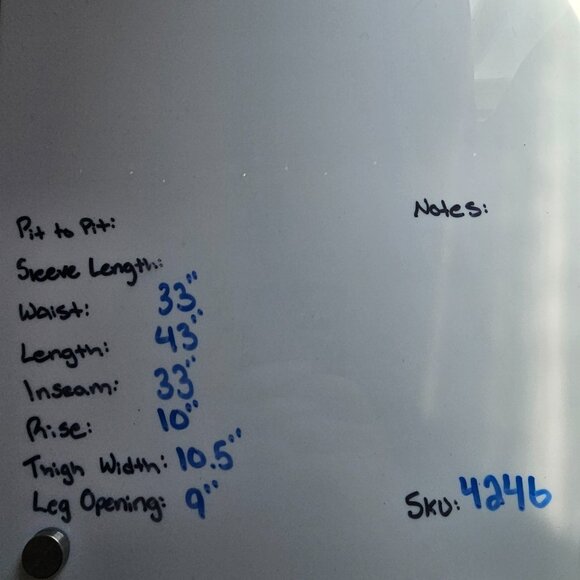 Pit to Pit:
Sleeve Length:
Waist: 33"
Length: 43"
Inseam: 33"
Rise: 10"
Thigh Width: 10.5"
Leg Opening: 9"
Notes:
Sku: 4246